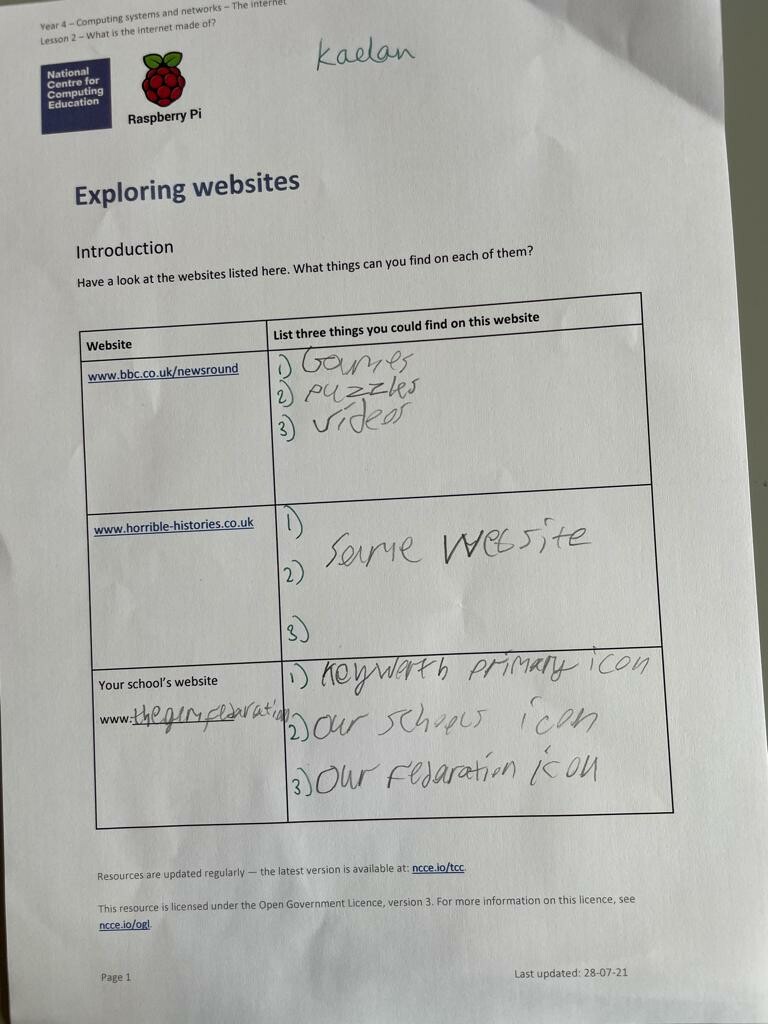 Year 4 – Computing systems and networks – The internet
Lesson 2 – What is the internet made of?
Kaelan
National
Centre for
Computing
Education
Raspberry Pi
Exploring websites
Introduction
Have a look at the websites listed here. What things can you find on each of them?
Website
List three things you could find on this website
www.bbc.co.uk/newsround
1) Games
2) puzzles
3) videos
www.horrible-histories.co.uk
1)
Same website
2)
3)
Your school's website
www.thegemfedaration
1) Keyworth primary icon
2) our schools icon
3) Our Fedaration icon
Resources are updated regularly — the latest version is available at: ncce.io/tcc.
This resource is licensed under the Open Government Licence, version 3. For more information on this licence, see
ncce.io/ogl.
Page 1
Last updated: 28-07-21